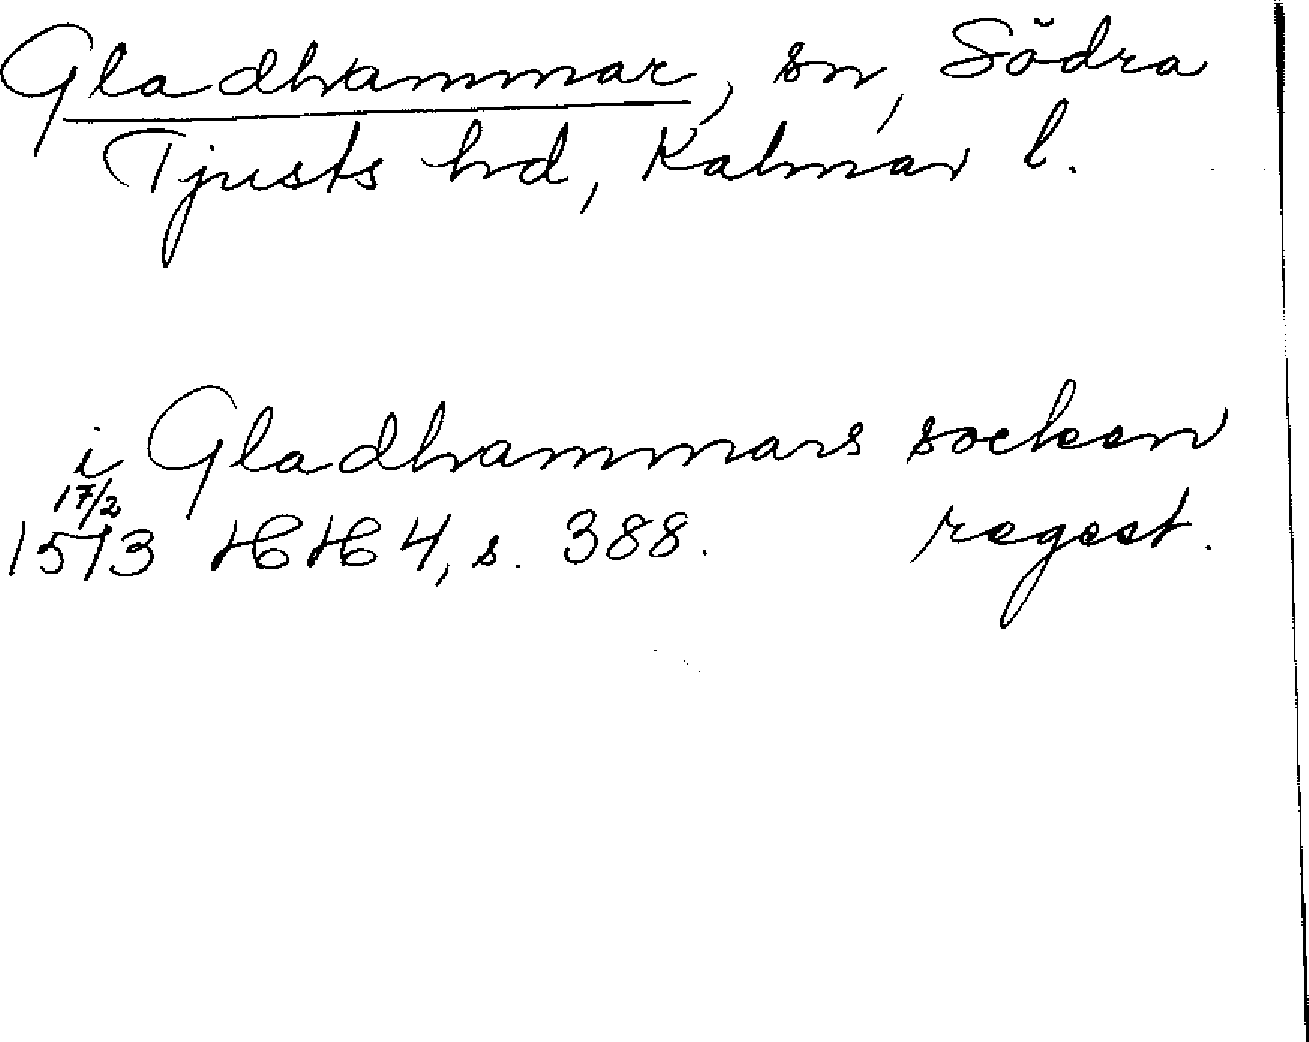 Gladhammar, sn, Södra
Tjusts hd, Kalmar l.
i Gladhammars socken
17/2
1573 HH 4, s. 388. regest.